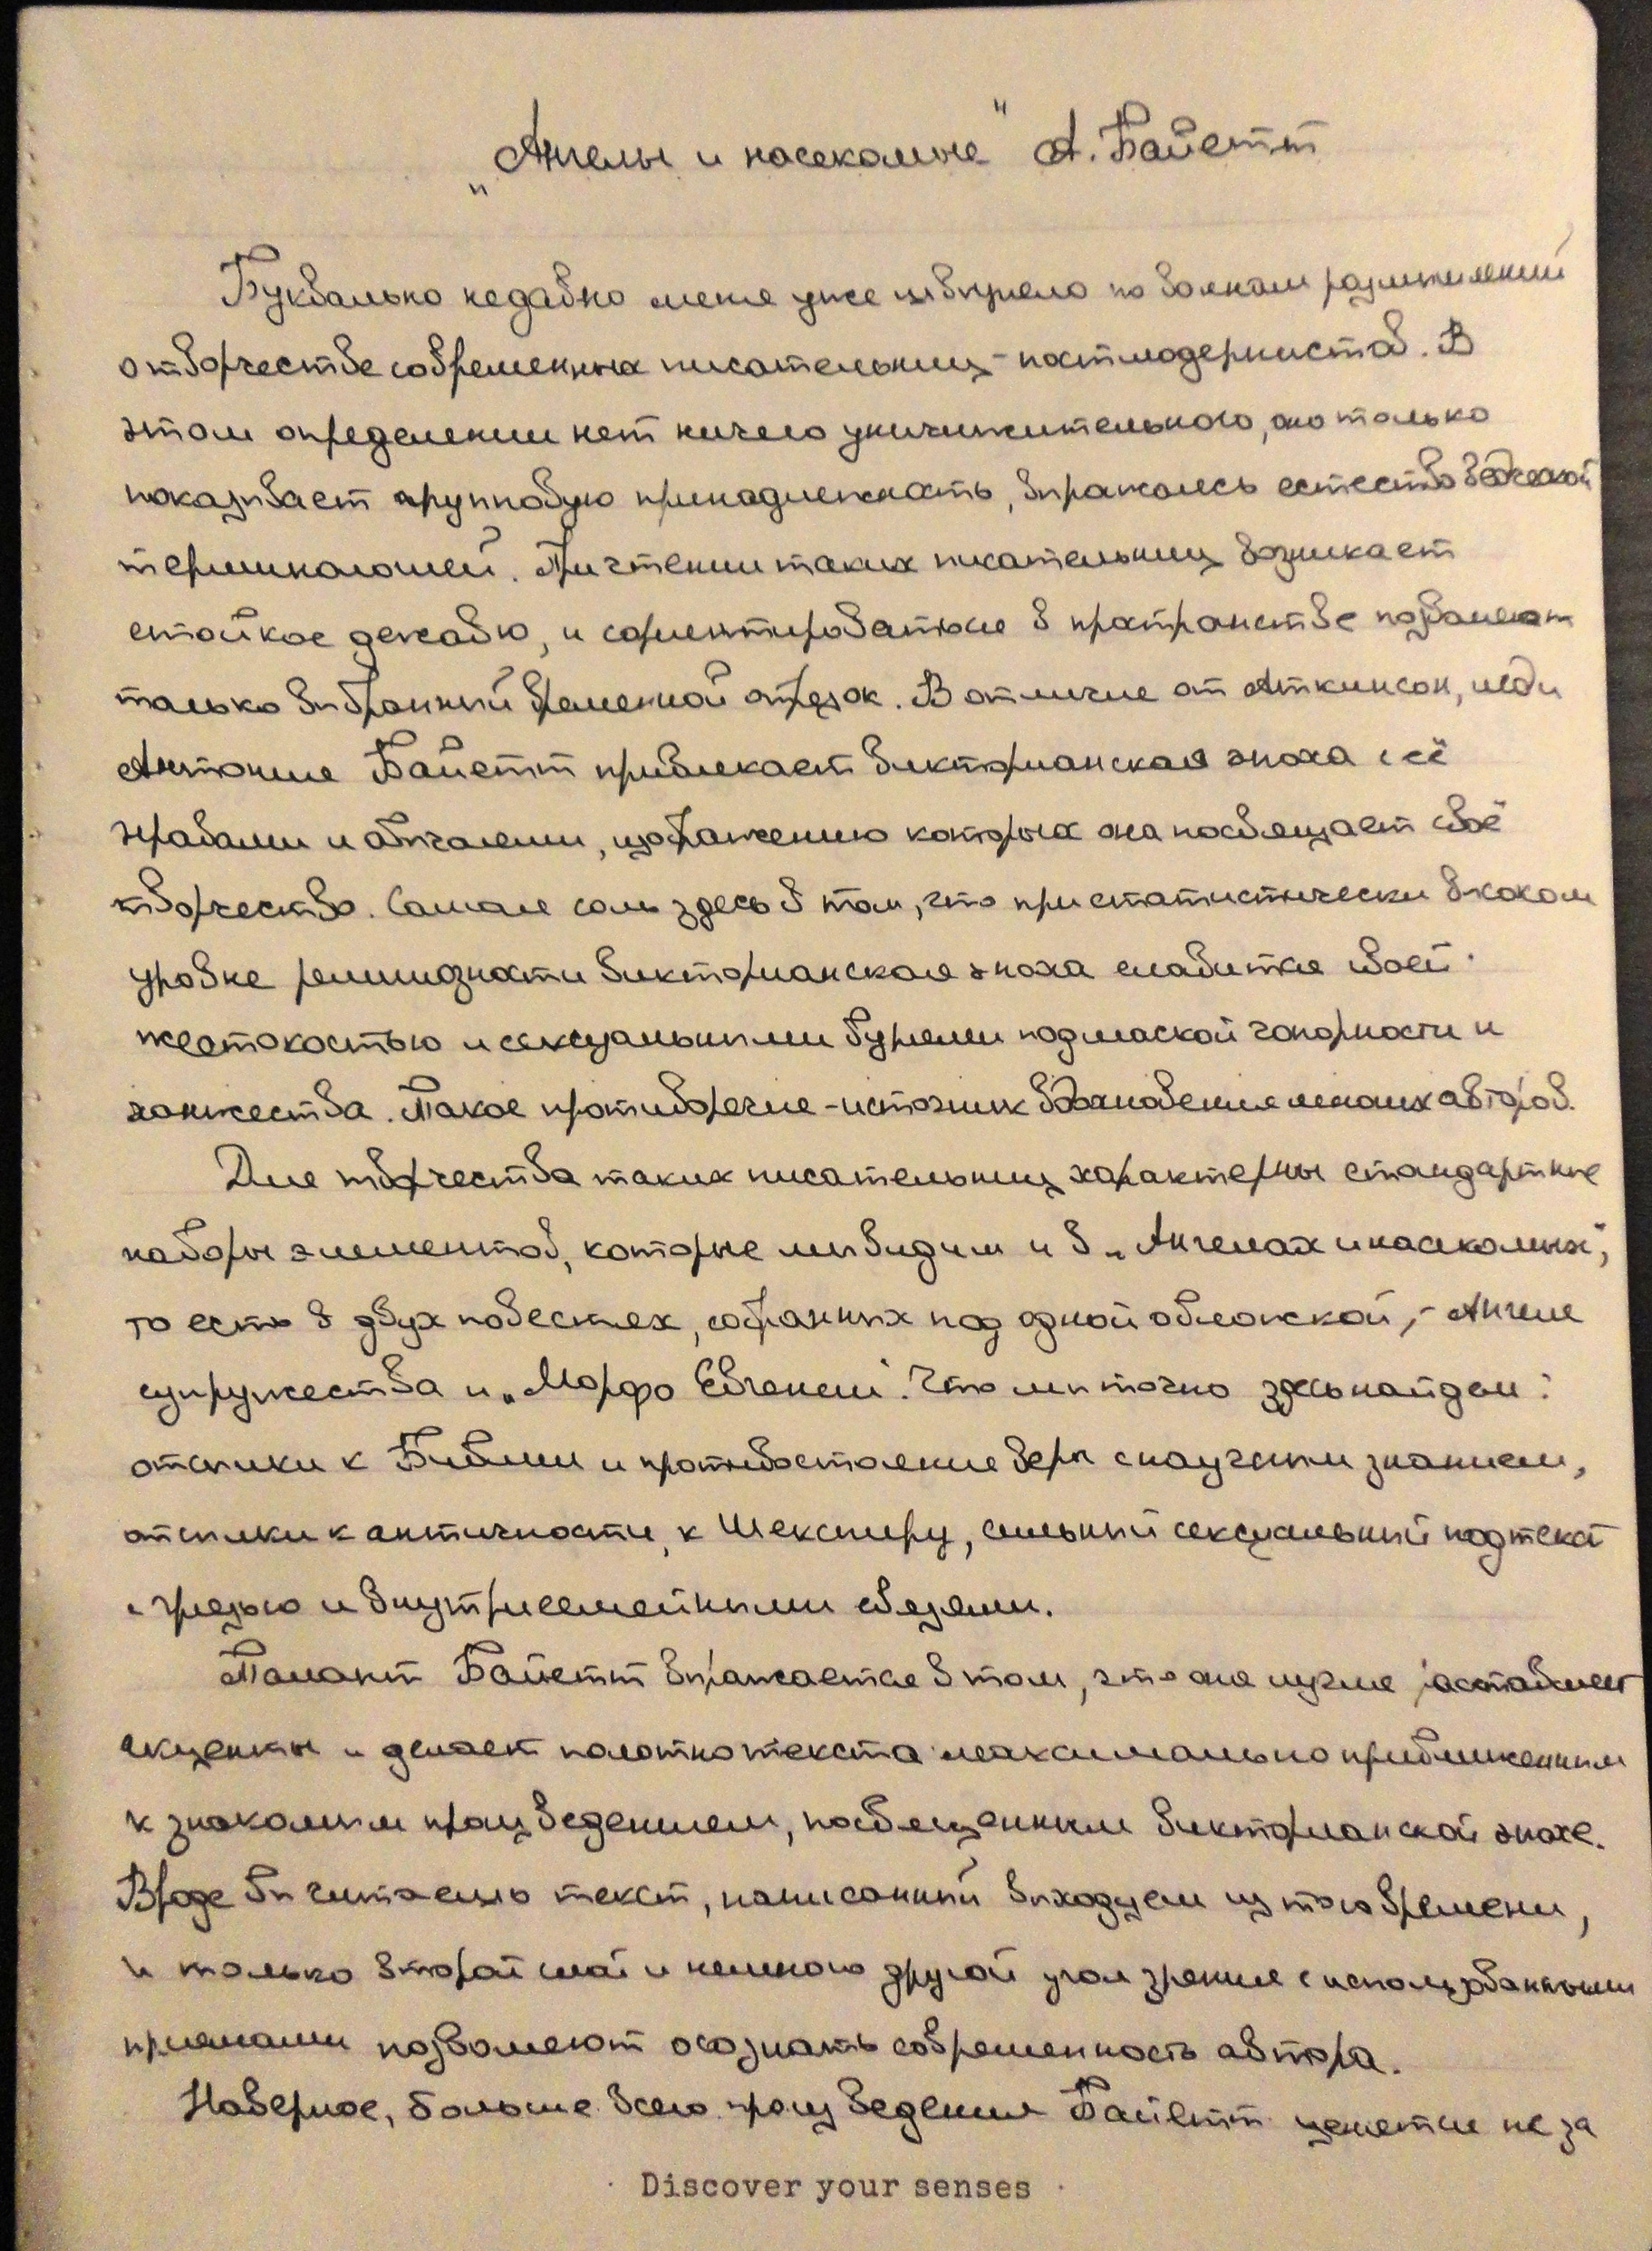 „Ангелы и насекомые" А. Байетт
Буквально недавно меня уже швыряло по волнам размышлений
о творчестве современных писательниц-постмодернистов. В
этом определении нет ничего уничижительного, оно только
показывает групповую принадлежность, выражаясь естествоведческой
терминологией. При чтении таких писательниц возникает
стойкое дежавю, и сориентироваться в пространстве позволяет
только выбранный временной отрезок. В отличие от Аткинсон, леди
Антонию Байетт привлекает викторианская эпоха с её
нравами и обычаями, изображению которых она посвящает своё
творчество. Самая соль здесь в том, что при статистически высоком
уровне религиозности викторианская эпоха славится своей
жестокостью и сексуальными бурями под маской чопорности и
ханжества. Такое противоречие - источник вдохновения многих авторов.
Для творчества таких писательниц характерны стандартные
наборы элементов, которые мы видим и в „Ангелах и насекомых",
то есть в двух повестях, собранных под одной обложкой, - Ангел
супружества и „Морфо Евгения". Что мы точно здесь найдем:
отсылки к Библии и противостояние веры с научным знанием,
отсылки к античности, к Шекспиру, сильный сексуальный подтекст
с грязью и внутрисемейными связями.
Талант Байетт выражается в том, что она лучше расставляет
акценты и делает полотно текста максимально приближенным
к знакомым произведениям, посвященным викторианской эпохе.
Вроде бы читаешь текст, написанный выходцем из того времени,
и только второй слой и немного другой угол зрения с использованными
приемами позволяют осознать современность автора.
Наверное, больше всего произведения Байетт ценятся не за
Discover your senses